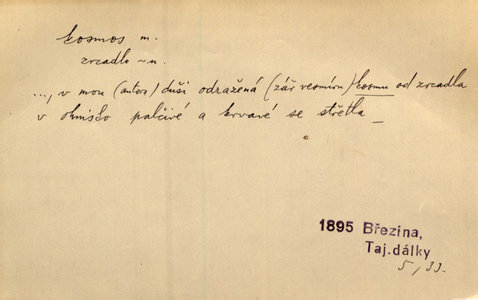 kosmos m.
zrcadlo ~ n.
..., v mou (autora) duši odražená (zář vesmíru) kosmu od zrcadla
v ohnisko palčivé a krvavé se střetla _
1895 Březina,
Taj. dálky
5/33.